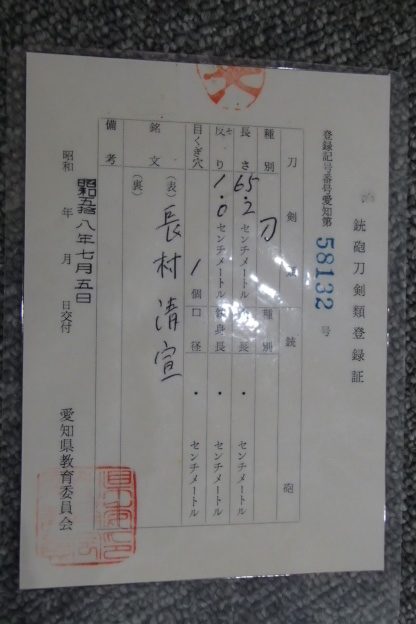 銃砲刀剣類登録証
登録記号番号愛知第 58132 号
刀剣類 銃砲
種別 刀 種別
長さ 65.2センチメートル 全長 . センチメートル
反り 1.0センチメートル 銃身長 . センチメートル
目くぎ穴 1個 口径 . センチメートル
銘文 (表)長村清宣
(裏)
備考
昭和 昭和五拾八年七月五日 年 月 日交付
愛知県教育委員会